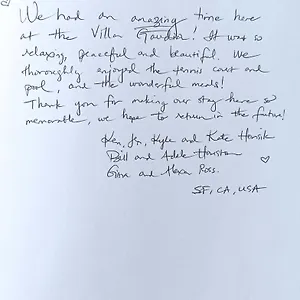 We had an amazing time here
at the Villa Gaudia! It was so
relaxing, peaceful and beautiful. We
thoroughly enjoyed the tennis court and
pool, and the wonderful meals!
Thank you for making our stay here so
memorable, we hope to return in the future!
Ken, Kyle and Kate
Bill and Adele Houston
and Alexa Ross.
SF, CA, USA